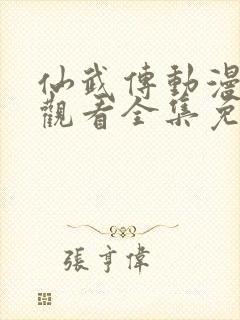 仙武傳動漫
觀看全集免
張亨偉